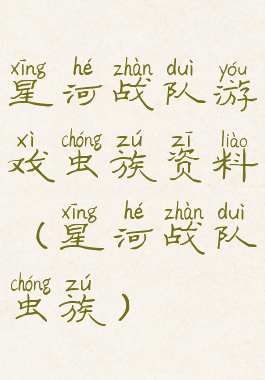 xīng hé zhàn duì yóu
星河战队游
xì chóng zú zī liào
戏虫族资料
xīng hé zhàn duì
（星河战队
chóng zú
虫族）